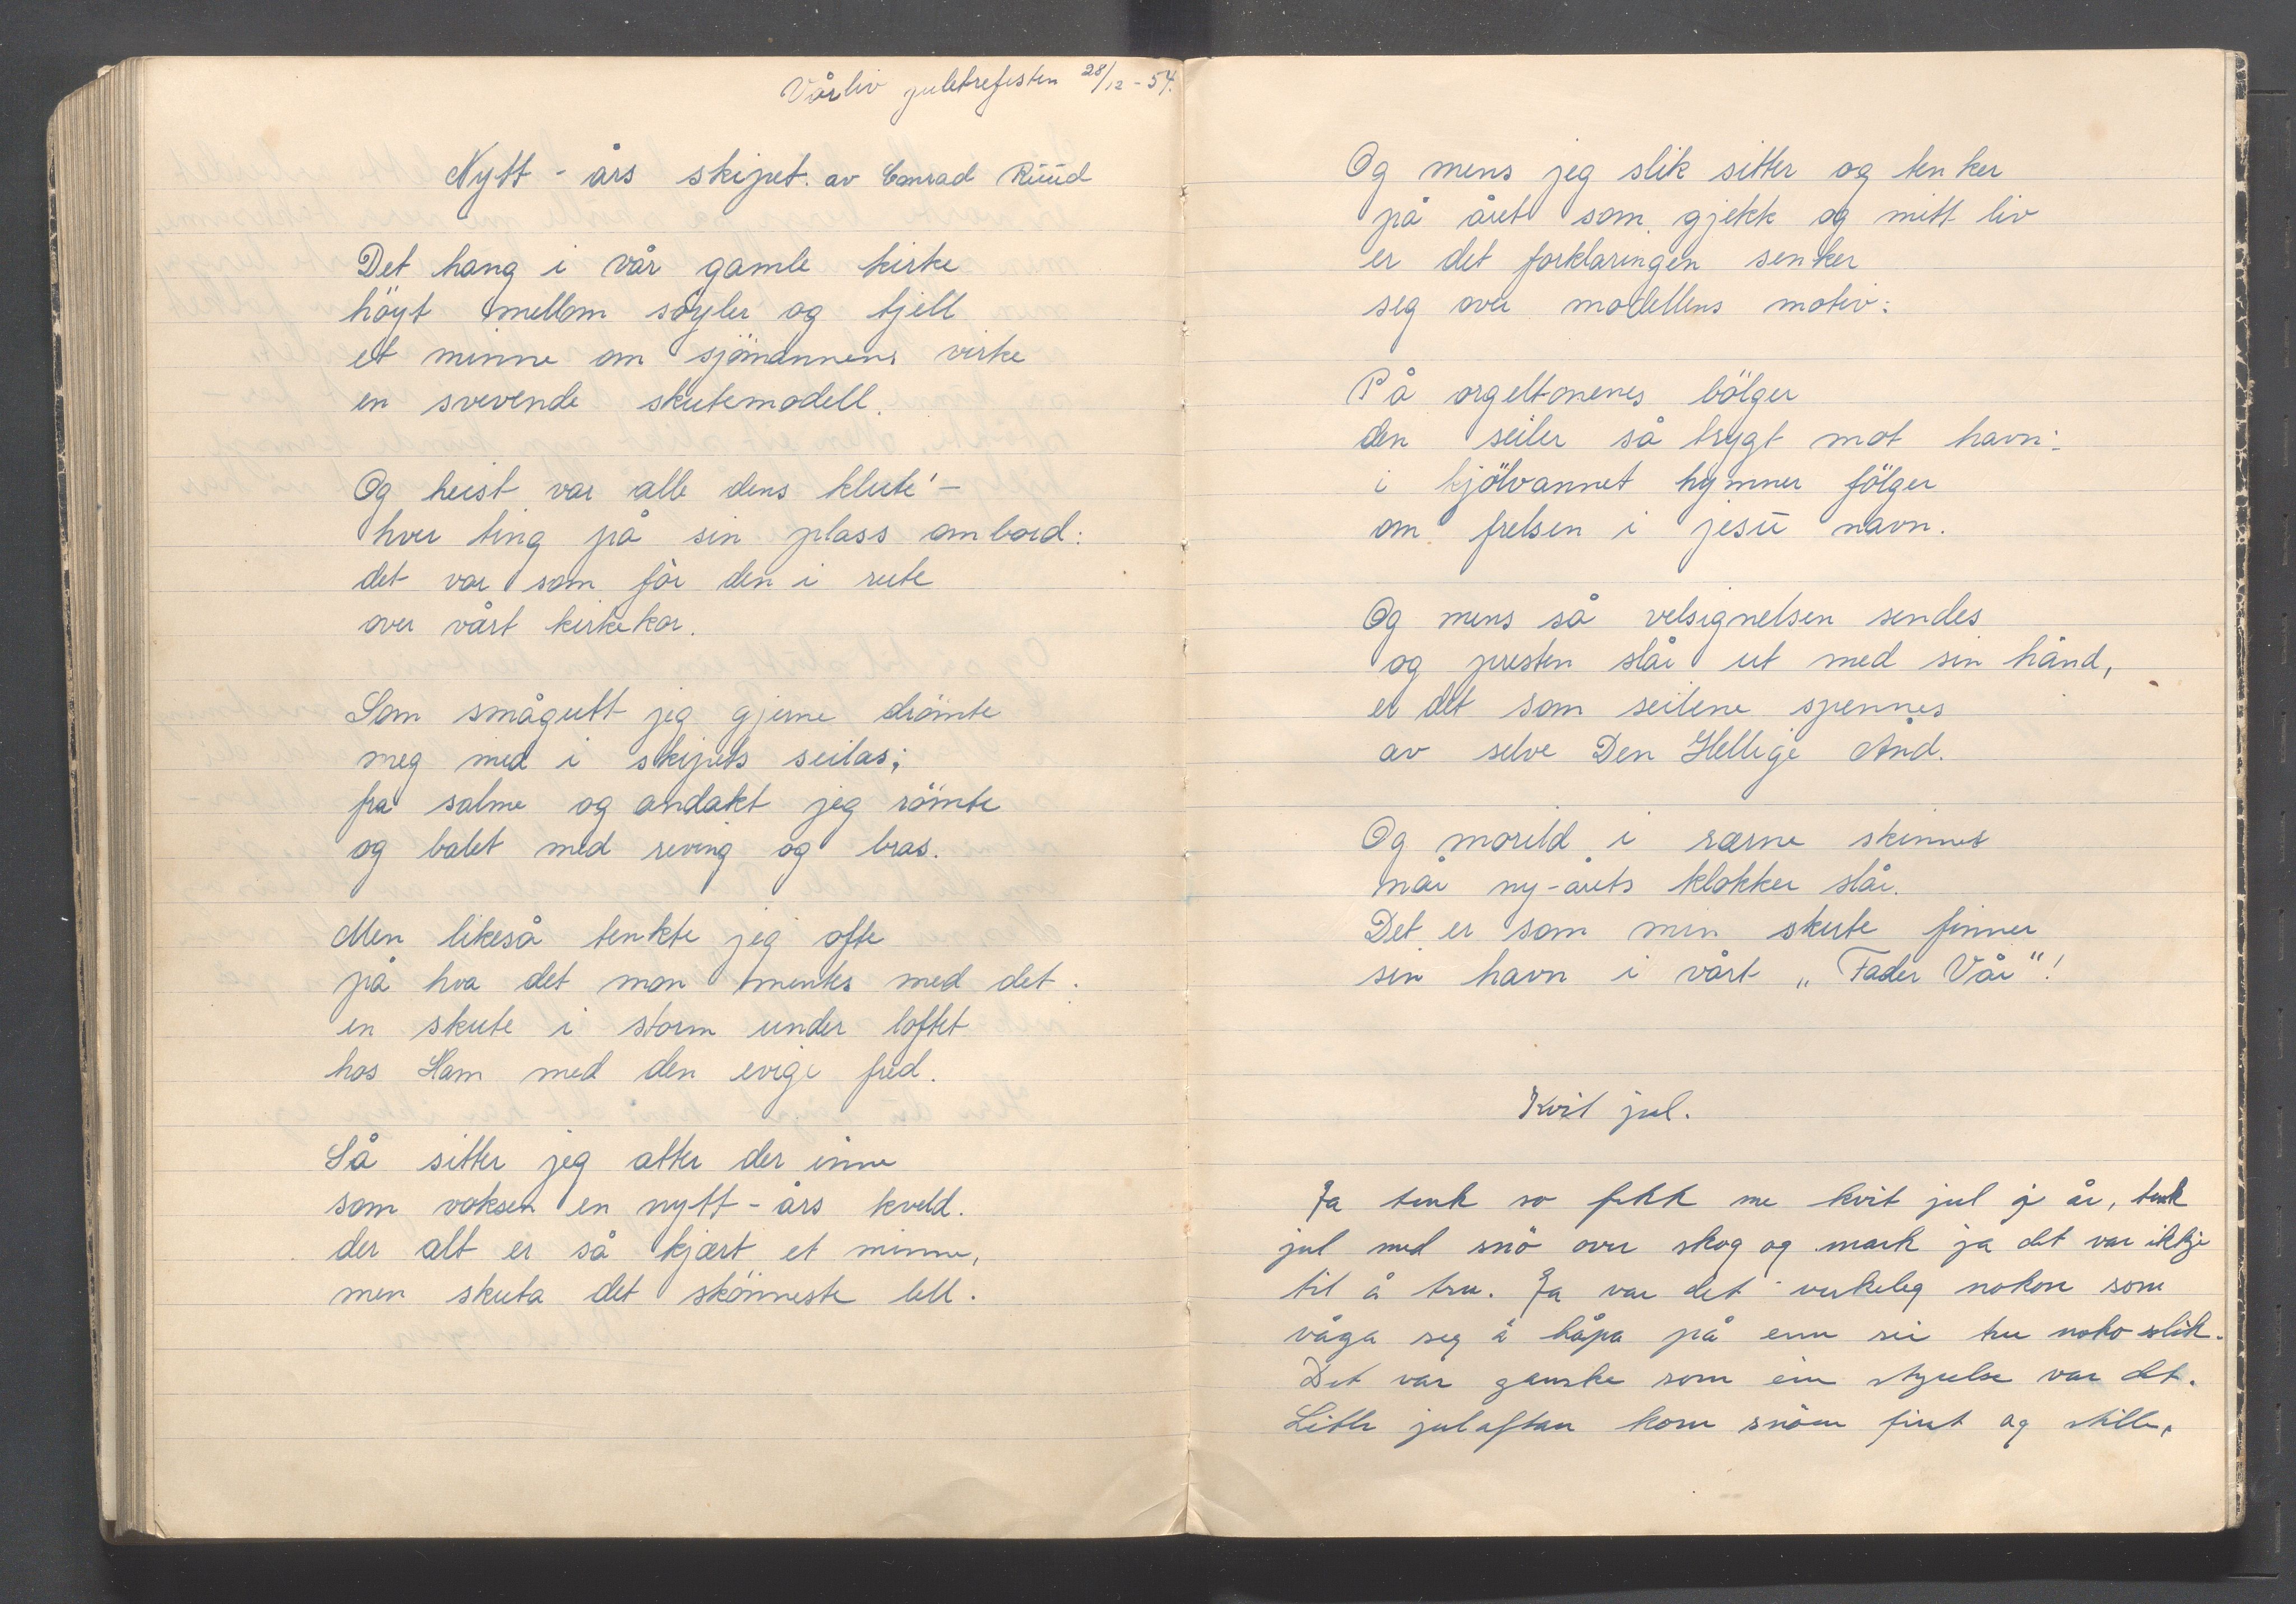 Vårliv juletrefesten 28/12-54.
Nytt-års skipet. av Conrad Rüüd
Det hang i vår gamle kirke
höyt mellom söyler og fjell
et minne om sjömannens virke
en svevende skutemodell.
Og heist var alle dens klute'-
hver ting på sin plass ombord:
det var som fór den i rute
over vårt kirkekor.
Som smågutt jeg gjerne drömte
meg med i skipets seilas;
fra salme og andakt jeg römte
og balet med reving og bras.
Men likeså tenkte jeg ofte
på hva det mon mentes med det.
en skute i storm under loftet
hos Ham med den evige fred.
Så sitter jeg atter der inne
som voksen en nytt-års kveld.
der alt er så kjært et minne,
men skuta det skönneste lell.
Og mens jeg slik sitter og tenker
på året som gjekk og mitt liv
er det forklaringen senker
seg over modellens motiv:
På orgeltonenes bölger
den seiler så trygt mot havn:
i kjölvannet hymner fölger
om frelsen i jesü navn.
Og mens så velsignelsen sendes
og presten slår ut med sin hånd,
er det som seilene spennes
av selve Den Hellige Ånd.
Og morild i rærne skinnes
når ny-årets klokker slår.
Det er som min skute finner
sin havn i vårt „Fader Vår"!
Kvit jul.
Ja tenk so fekk me kvit jul i år, tenk
jul med snö over skog og mark ja det var ikkje
til å tru. Ja var det verkeleg nokon som
våga seg å håpa på enn sei tru noko slik.
Det var ganske som ein styrelse var det.
Litle julaftan kom snöen fint og stille,